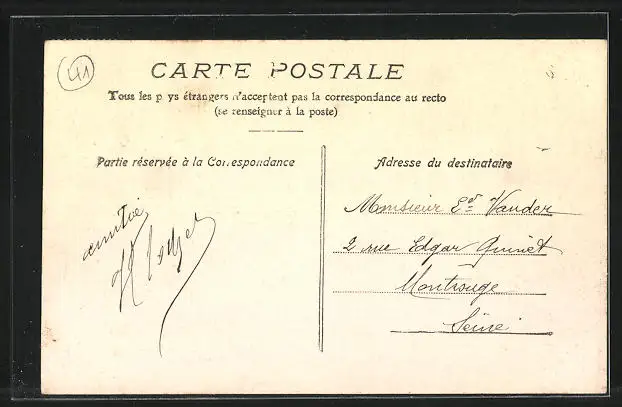 41
CARTE POSTALE
Tous les pays étrangers n'acceptent pas la correspondance au recto
(se renseigner à la poste)
Partie réservée à la Correspondance
Adresse du destinataire
amitié
Monsieur Ed Vander
2 rue Edgar Quinet
Montrouge
Seine